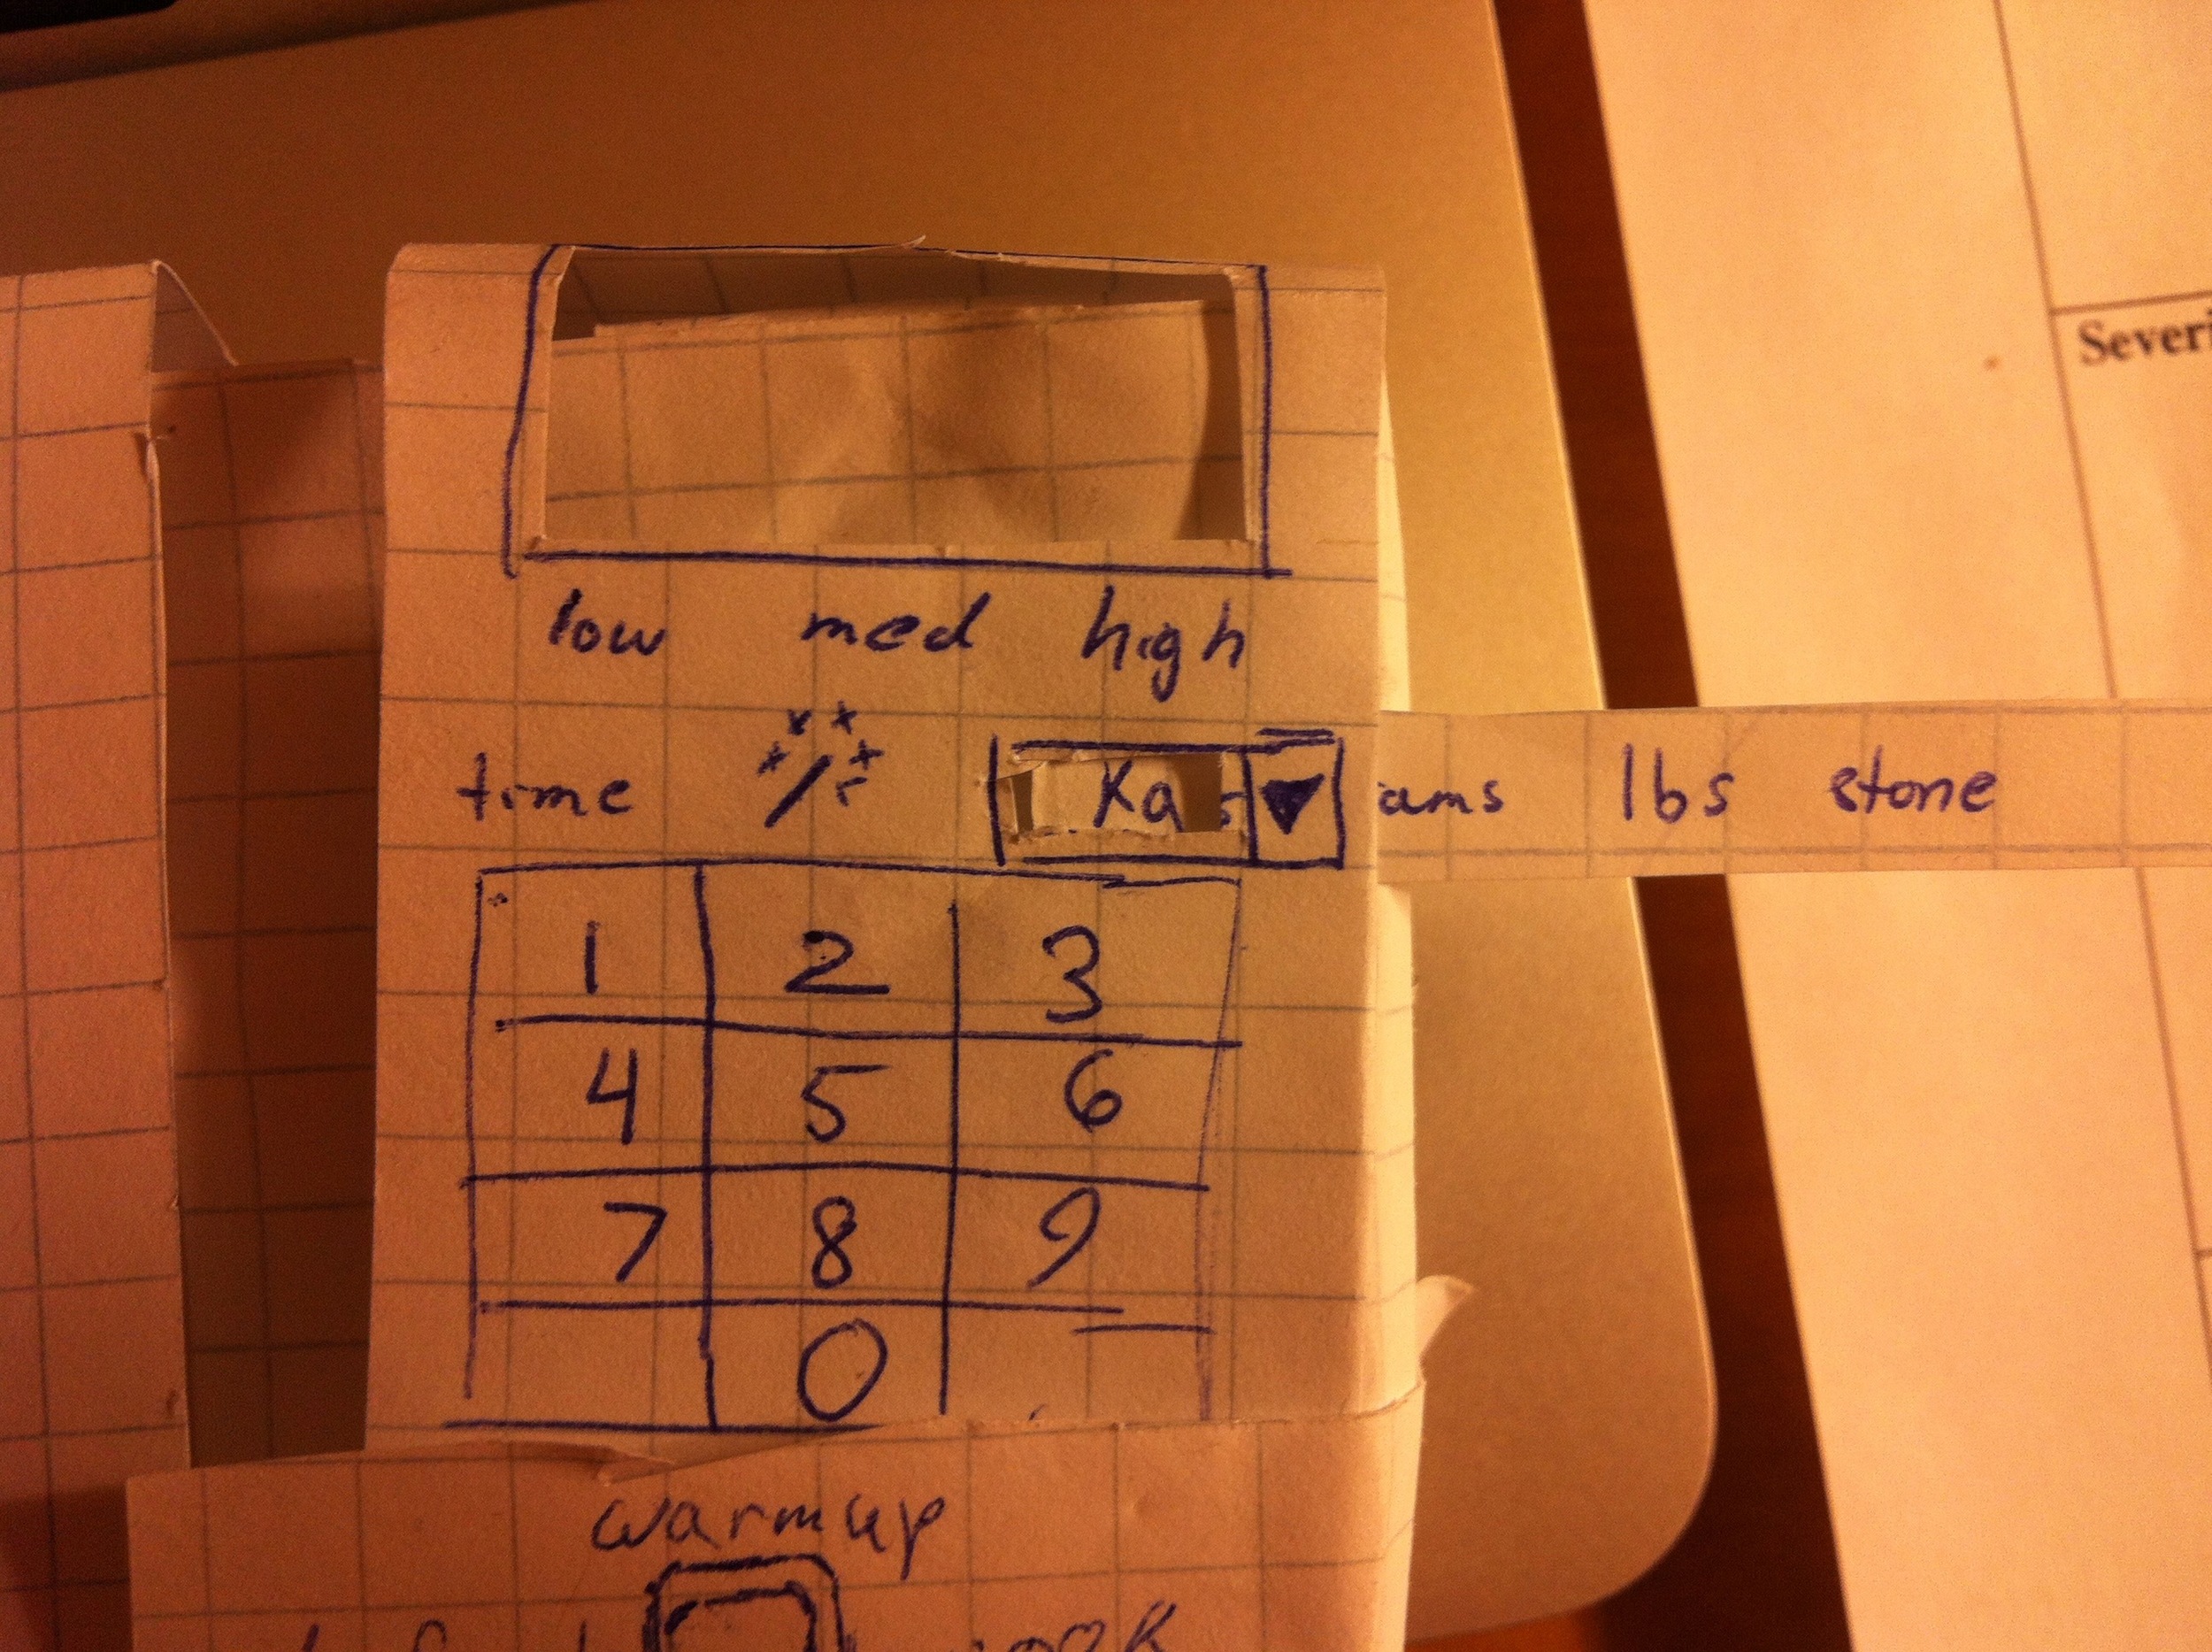 Severi
low med high
time Kg ams lbs stone
1 2 3
4 5 6
7 8 9
0
warmup